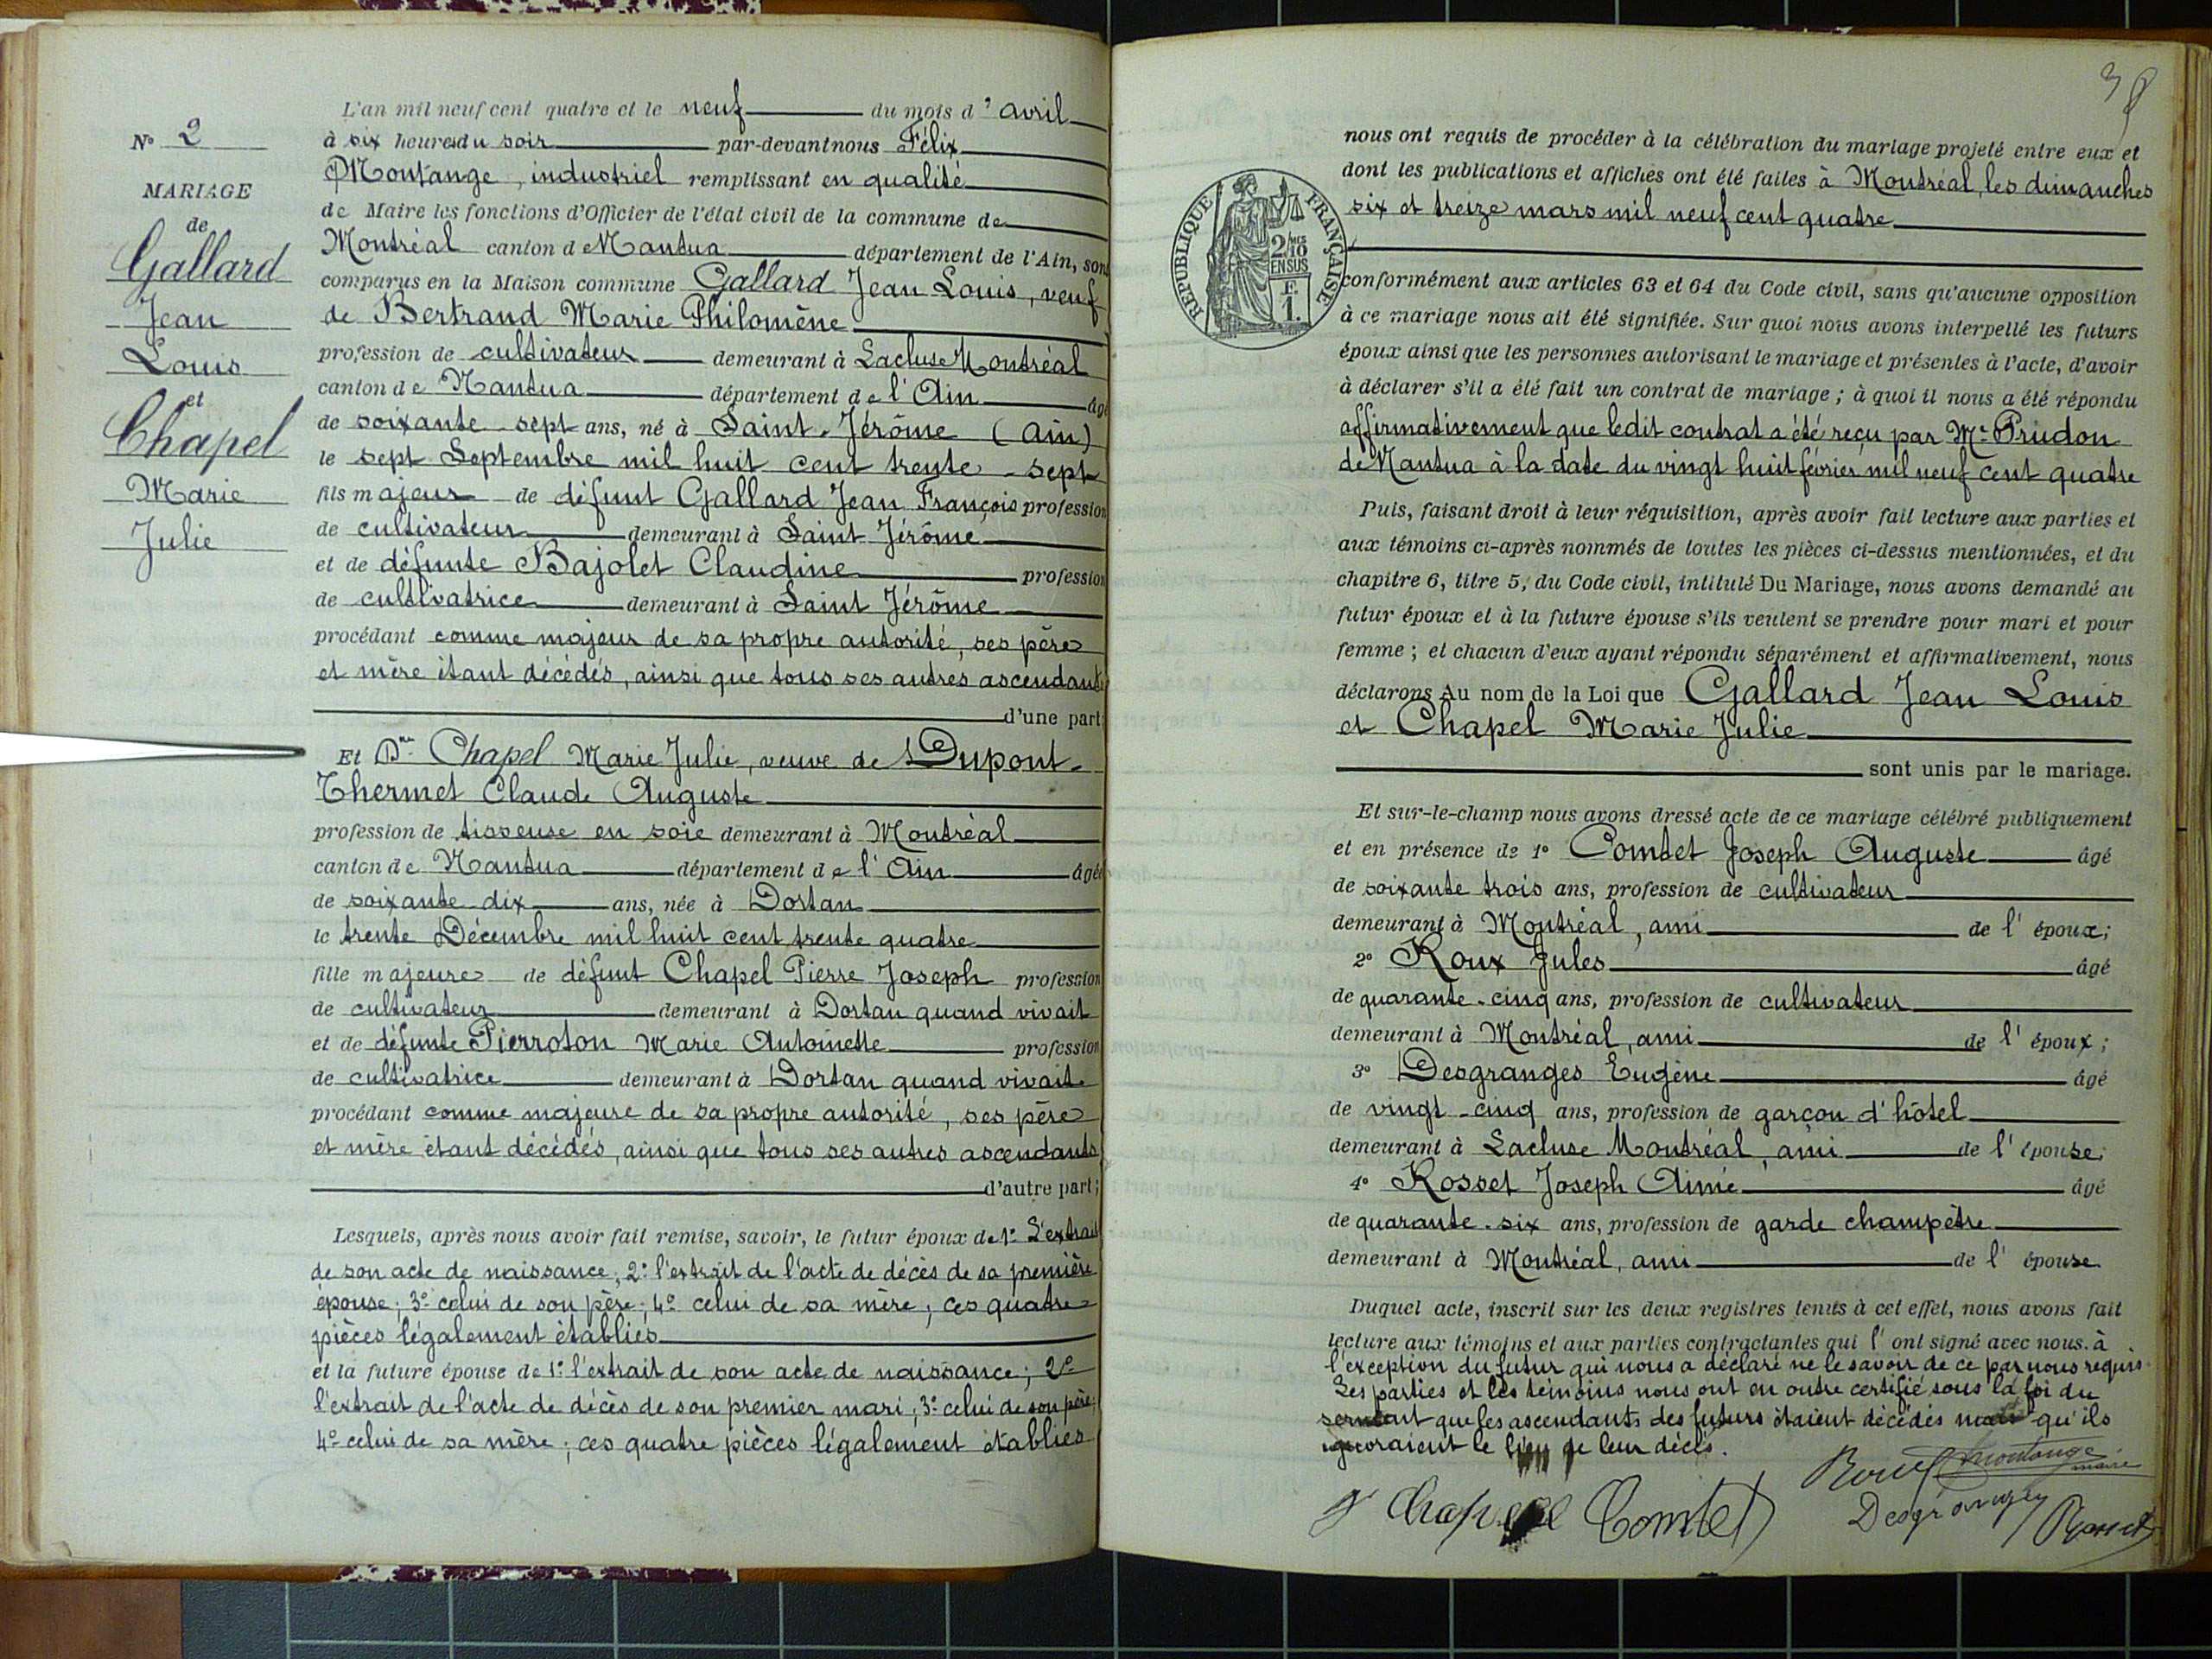 N° 2
MARIAGE
de
Gallard
Jean
Louis
et
Chapel
Marie
Julie
L'an mil neuf cent quatre et le neuf du mois d'avril
à six heures du soir par-devant nous Félix
Montange, industriel remplissant en qualité
de Maire les fonctions d'Officier de l'état civil de la commune de
Montréal canton de Nantua département de l'Ain, sont
comparus en la Maison commune Gallard Jean Louis, veuf
de Bertrand Marie Philomène
profession de cultivateur demeurant à Lacluse Montréal
canton de Nantua département de l'Ain âgé
de soixante-sept ans, né à Saint-Jérôme (Ain)
le sept Septembre mil huit cent trente-sept
fils majeur de défunt Gallard Jean François profession
de cultivateur demeurant à Saint-Jérôme
et de défunte Bajolet Claudine profession
de cultivatrice demeurant à Saint Jérôme
procédant comme majeur de sa propre autorité, ses père
et mère étant décédés, ainsi que tous ses autres ascendants
d'une part;
Et Dme Chapel Marie Julie, veuve de Dupont-
Thermet Claude Auguste
profession de tisseuse en soie demeurant à Montréal
canton de Nantua département de l'Ain âgée
de soixante-dix ans, née à Dortan
le trente Décembre mil huit cent trente quatre
fille majeure de défunt Chapel Pierre Joseph profession
de cultivateur demeurant à Dortan quand vivait
et de défunte Pierroton Marie Antoinette profession
de cultivatrice demeurant à Dortan quand vivait
procédant comme majeure de sa propre autorité, ses père
et mère étant décédés, ainsi que tous ses autres ascendants
d'autre part;
Lesquels, après nous avoir fait remise, savoir, le futur époux de 1° L'extrait
de son acte de naissance; 2° l'extrait de l'acte de décès de sa première
épouse; 3° celui de son père; 4° celui de sa mère; ces quatre
pièces légalement établies
et la future épouse de 1° l'extrait de son acte de naissance; 2°
l'extrait de l'acte de décès de son premier mari; 3° celui de son père;
4° celui de sa mère; ces quatre pièces légalement établies
38
REPUBLIQUE FRANÇAISE
2/10 MES
EN SUS
F.
1.
nous ont requis de procéder à la célébration du mariage projeté entre eux et
dont les publications et affiches ont été faites à Montréal, les dimanches
six et treize mars mil neuf cent quatre
conformément aux articles 63 et 64 du Code civil, sans qu'aucune opposition
à ce mariage nous ait été signifiée. Sur quoi nous avons interpellé les futurs
époux ainsi que les personnes autorisant le mariage et présentes à l'acte, d'avoir
à déclarer s'il a été fait un contrat de mariage; à quoi il nous a été répondu
affirmativement que ledit contrat a été reçu par Me Prudon
de Nantua à la date du vingt huit février mil neuf cent quatre
Puis, faisant droit à leur réquisition, après avoir fait lecture aux parties et
aux témoins ci-après nommés de toutes les pièces ci-dessus mentionnées, et du
chapitre 6, titre 5, du Code civil, intitulé Du Mariage, nous avons demandé au
futur époux et à la future épouse s'ils veulent se prendre pour mari et pour
femme; et chacun d'eux ayant répondu séparément et affirmativement, nous
déclarons Au nom de la Loi que Gallard Jean Louis
et Chapel Marie Julie
sont unis par le mariage.
Et sur-le-champ nous avons dressé acte de ce mariage célébré publiquement
et en présence de 1° Comtet Joseph Auguste âgé
de soixante trois ans, profession de cultivateur
demeurant à Montréal, ami de l'époux;
2° Roux Jules âgé
de quarante-cinq ans, profession de cultivateur
demeurant à Montréal, ami de l'époux;
3° Desgranges Eugène âgé
de vingt-cinq ans, profession de garçon d'hôtel
demeurant à Lacluse Montréal, ami de l'épouse;
4° Rosset Joseph Aimé âgé
de quarante-six ans, profession de garde champêtre
demeurant à Montréal, ami de l'épouse.
Duquel acte, inscrit sur les deux registres tenus à cet effet, nous avons fait
lecture aux témoins et aux parties contractantes qui l'ont signé avec nous. à
l'exception du futur qui nous a déclaré ne le savoir de ce par nous requis.
Les parties et les témoins nous ont en outre certifié sous la foi du
serment que les ascendants des futurs étaient décédés mais qu'ils
ignoraient le lieu de leur décès.
Roux Montange
maire
Chapel Comtet Desgranges Rosset